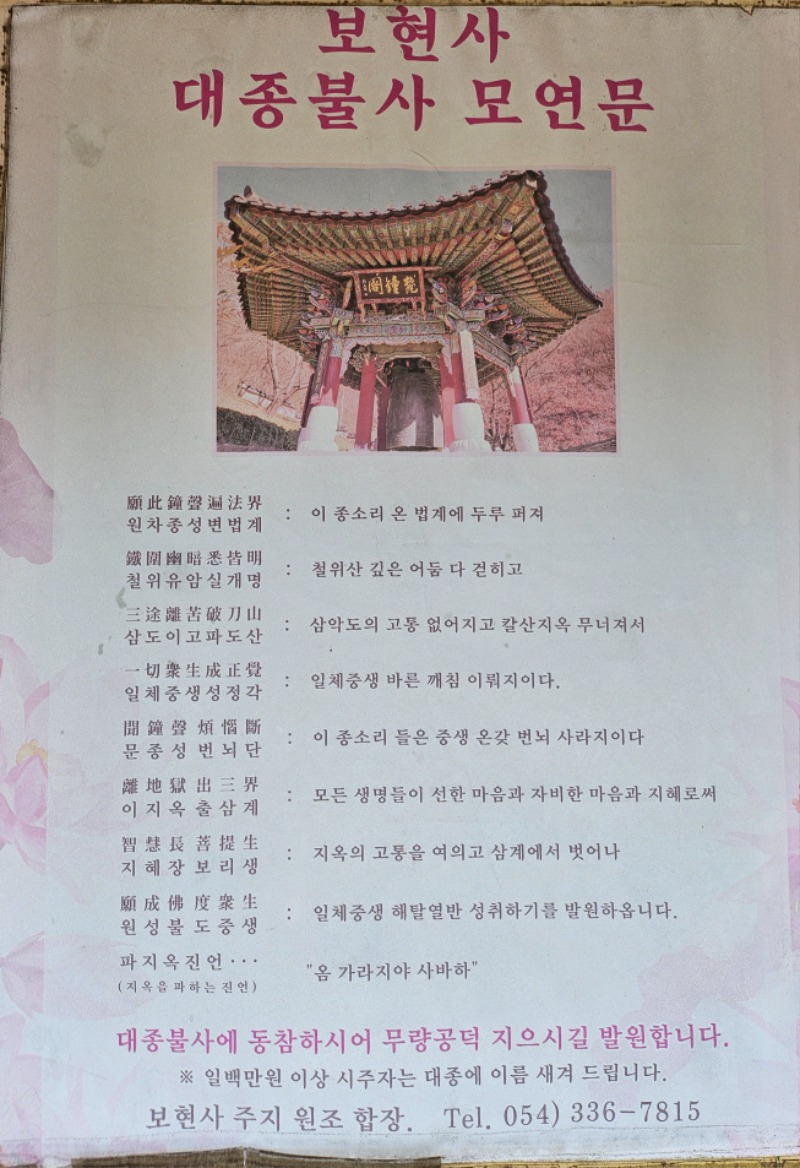 보현사
대종불사 모연문
梵鐘閣
願此鐘聲遍法界
원차종성변법계 : 이 종소리 온 법계에 두루 퍼져
鐵圍幽暗悉皆明
철위유암실개명 : 철위산 깊은 어둠 다 걷히고
三途離苦破刀山
삼도이고파도산 : 삼악도의 고통 없어지고 칼산지옥 무너져서
一切衆生成正覺
일체중생성정각 : 일체중생 바른 깨침 이뤄지이다.
聞鐘聲煩惱斷
문종성번뇌단 : 이 종소리 들은 중생 온갖 번뇌 사라지이다
離地獄出三界
이지옥출삼계 : 모든 생명들이 선한 마음과 자비한 마음과 지혜로써
智慧長菩提生
지혜장보리생 : 지옥의 고통을 여의고 삼계에서 벗어나
願成佛度衆生
원성불도중생 : 일체중생 해탈열반 성취하기를 발원하옵니다.
파지옥진언··· "옴 가라지야 사바하"
(지옥을 파하는 진언)
대종불사에 동참하시어 무량공덕 지으시길 발원합니다.
※ 일백만원 이상 시주자는 대종에 이름 새겨 드립니다.
보현사 주지 원조 합장. Tel. 054) 336-7815